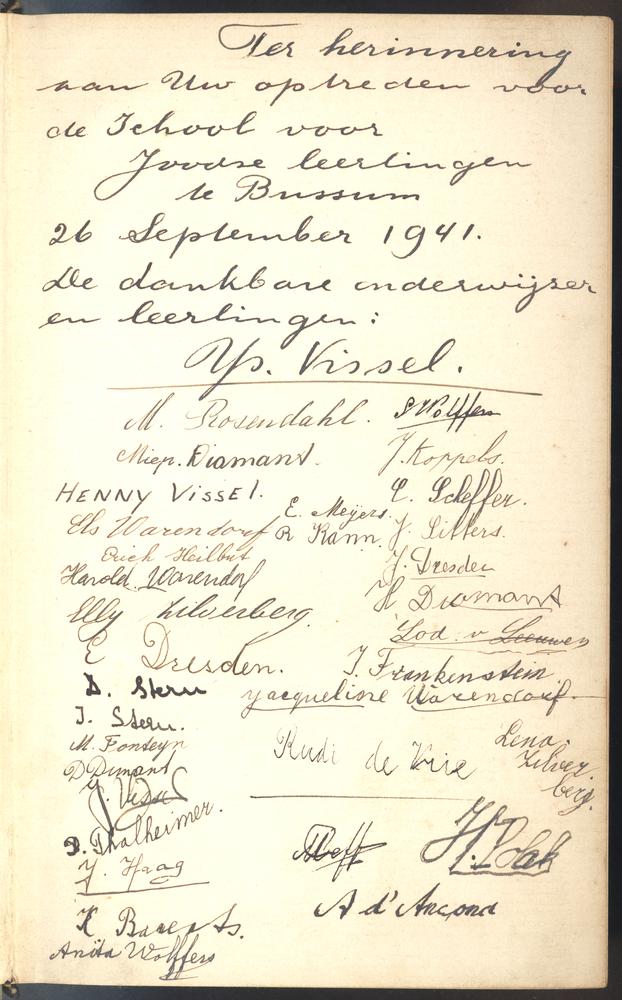 Ter herinnering
aan Uw optreden voor
de School voor
Joodse leerlingen
te Bussum
26 September 1941.
De dankbare onderwijzer
en leerlingen:
Vissel.
M. Rosendahl.
S Wolffers
Miep. Diamant.
J. Koppels.
HENNY VISSEL.
E. Meyers.
E. Scheffer.
Els Warendorf
R Kann.
J. Sitters.
Erich Heilbut
Harold Warendorf
J. Dresden
H Diamant
Elly Zilverberg.
Lod. v Leeuwen
E Dresden.
J. Frankenstein.
D. Stern
Jacqueline Warendorf.
J. Stern.
M. Fonteyn
D Diamant
Rudi de Vrie
Lena.
Zilver
berg.
J. Vissel
D. Thalheimer.
H. Polak
J. Haag
A d'Ancona
K Barents.
Anita Wolffers